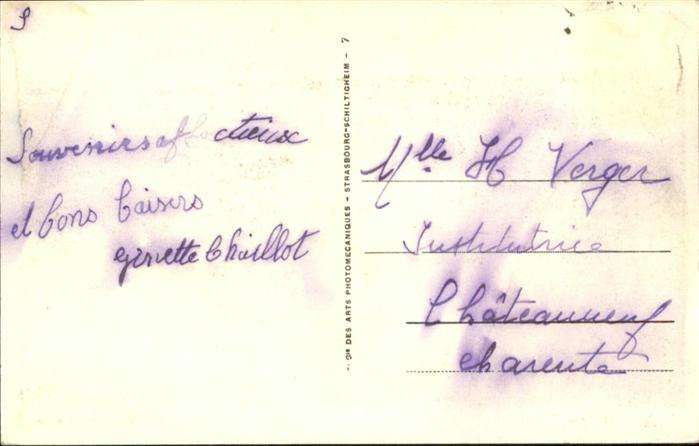 Souvenirs affectueux
et bons baisers
ginette Chaillot
- Cie DES ARTS PHOTOMECANIQUES - STRASBOURG-SCHILTIGHEIM - 7
Mlle H Verger
Institutrice
Châteauneuf
charente